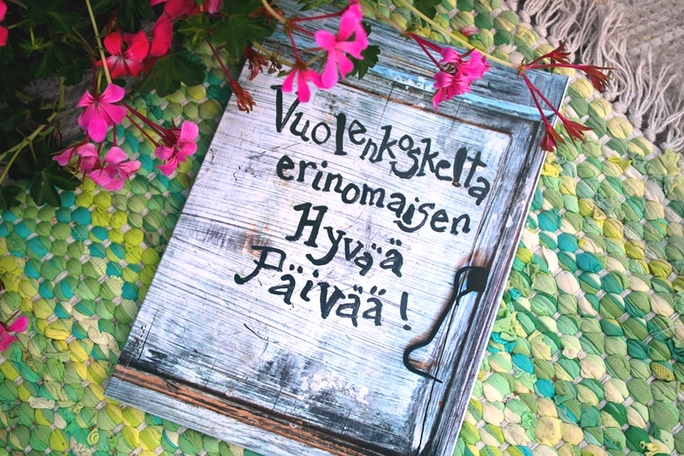 Vuolenkoskelta
erinomaisen
Hyvää
Päivää!